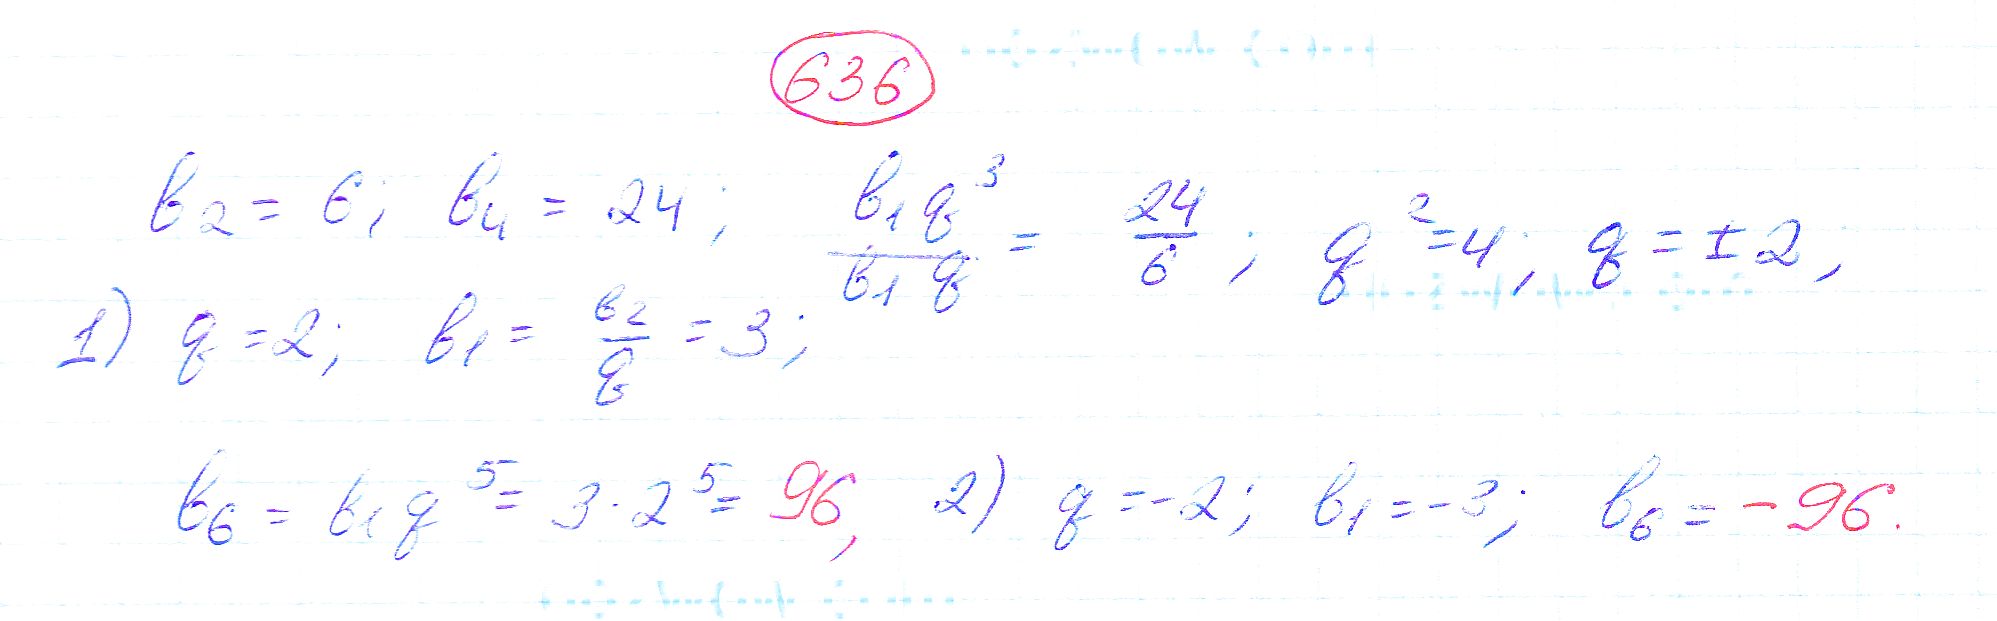 636
b₂ = 6; b₄ = 24; b₁q³/b₁q = 24/6; q² = 4; q = ±2;
1) q = 2; b₁ = b₂/q = 3;
b₆ = b₁q⁵ = 3·2⁵ = 96, 2) q = -2; b₁ = -3; b₆ = -96.